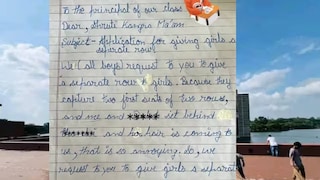 To the principal of our class
Dear, Shruti Kangra Ma'am
Subject- Application for giving girls a
separate row.
We (all boys) request to you to give
a separate row to girls. Because they
capture two first seats of two rows,
and me and ***** sit behind
****** and her hair is coming to
us, that is so annoying. So, we
request to you to give girls a separate